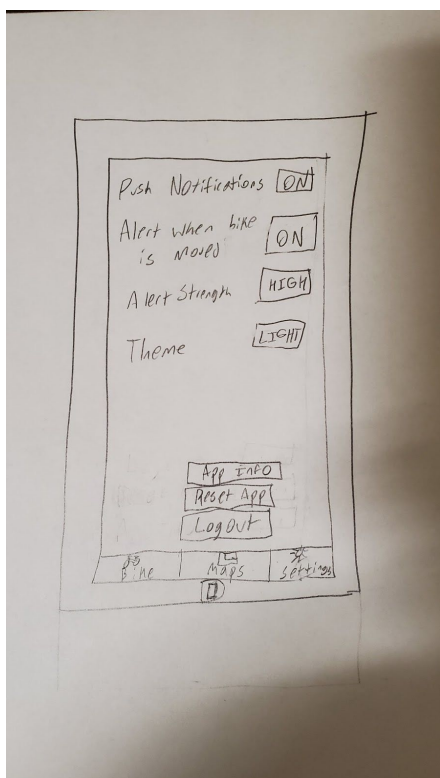 Push Notifications ON
Alert when bike
is moved ON
Alert Strength HIGH
Theme LIGHT
App Info
Reset App
Logout
Bike Maps Settings